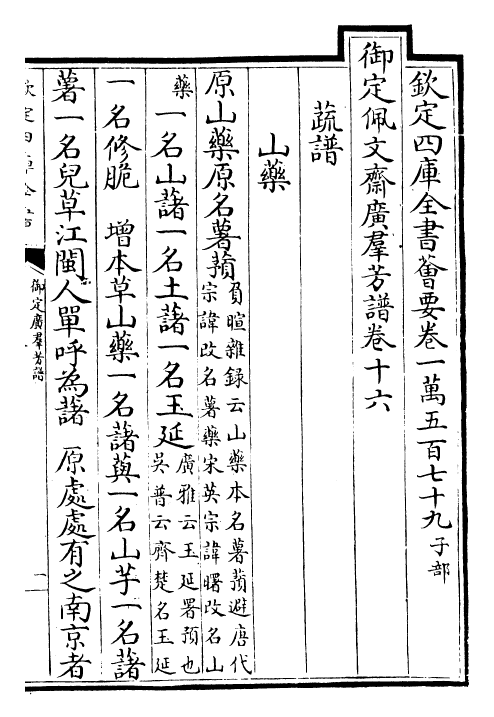 欽定四庫全書薈要卷一萬五百七十九 子部
御定佩文齋廣羣芳譜卷十六
蔬譜
山藥
原山藥原名薯蕷
負暄雜録云山藥本名薯蕷避唐代
宗諱改名薯藥宋英宗諱曙改名山
藥 一名山藷一名土藷一名玉延
廣雅云玉延署預也
吳普云齊楚名玉延
一名修脆 增本草山藥一名藷藇一名山芋一名藷
薯一名兒草江閩人單呼為藷 原處處有之南京者
御定廣羣芳譜